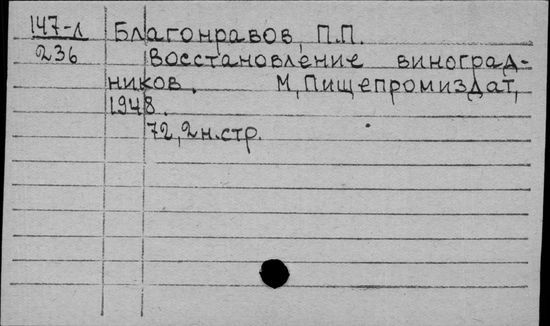 147-л
236
Благонравов, П.П.
Восстановление виноград-
ников. М, Пищепромиздат,
1948.
72, 2н.стр.